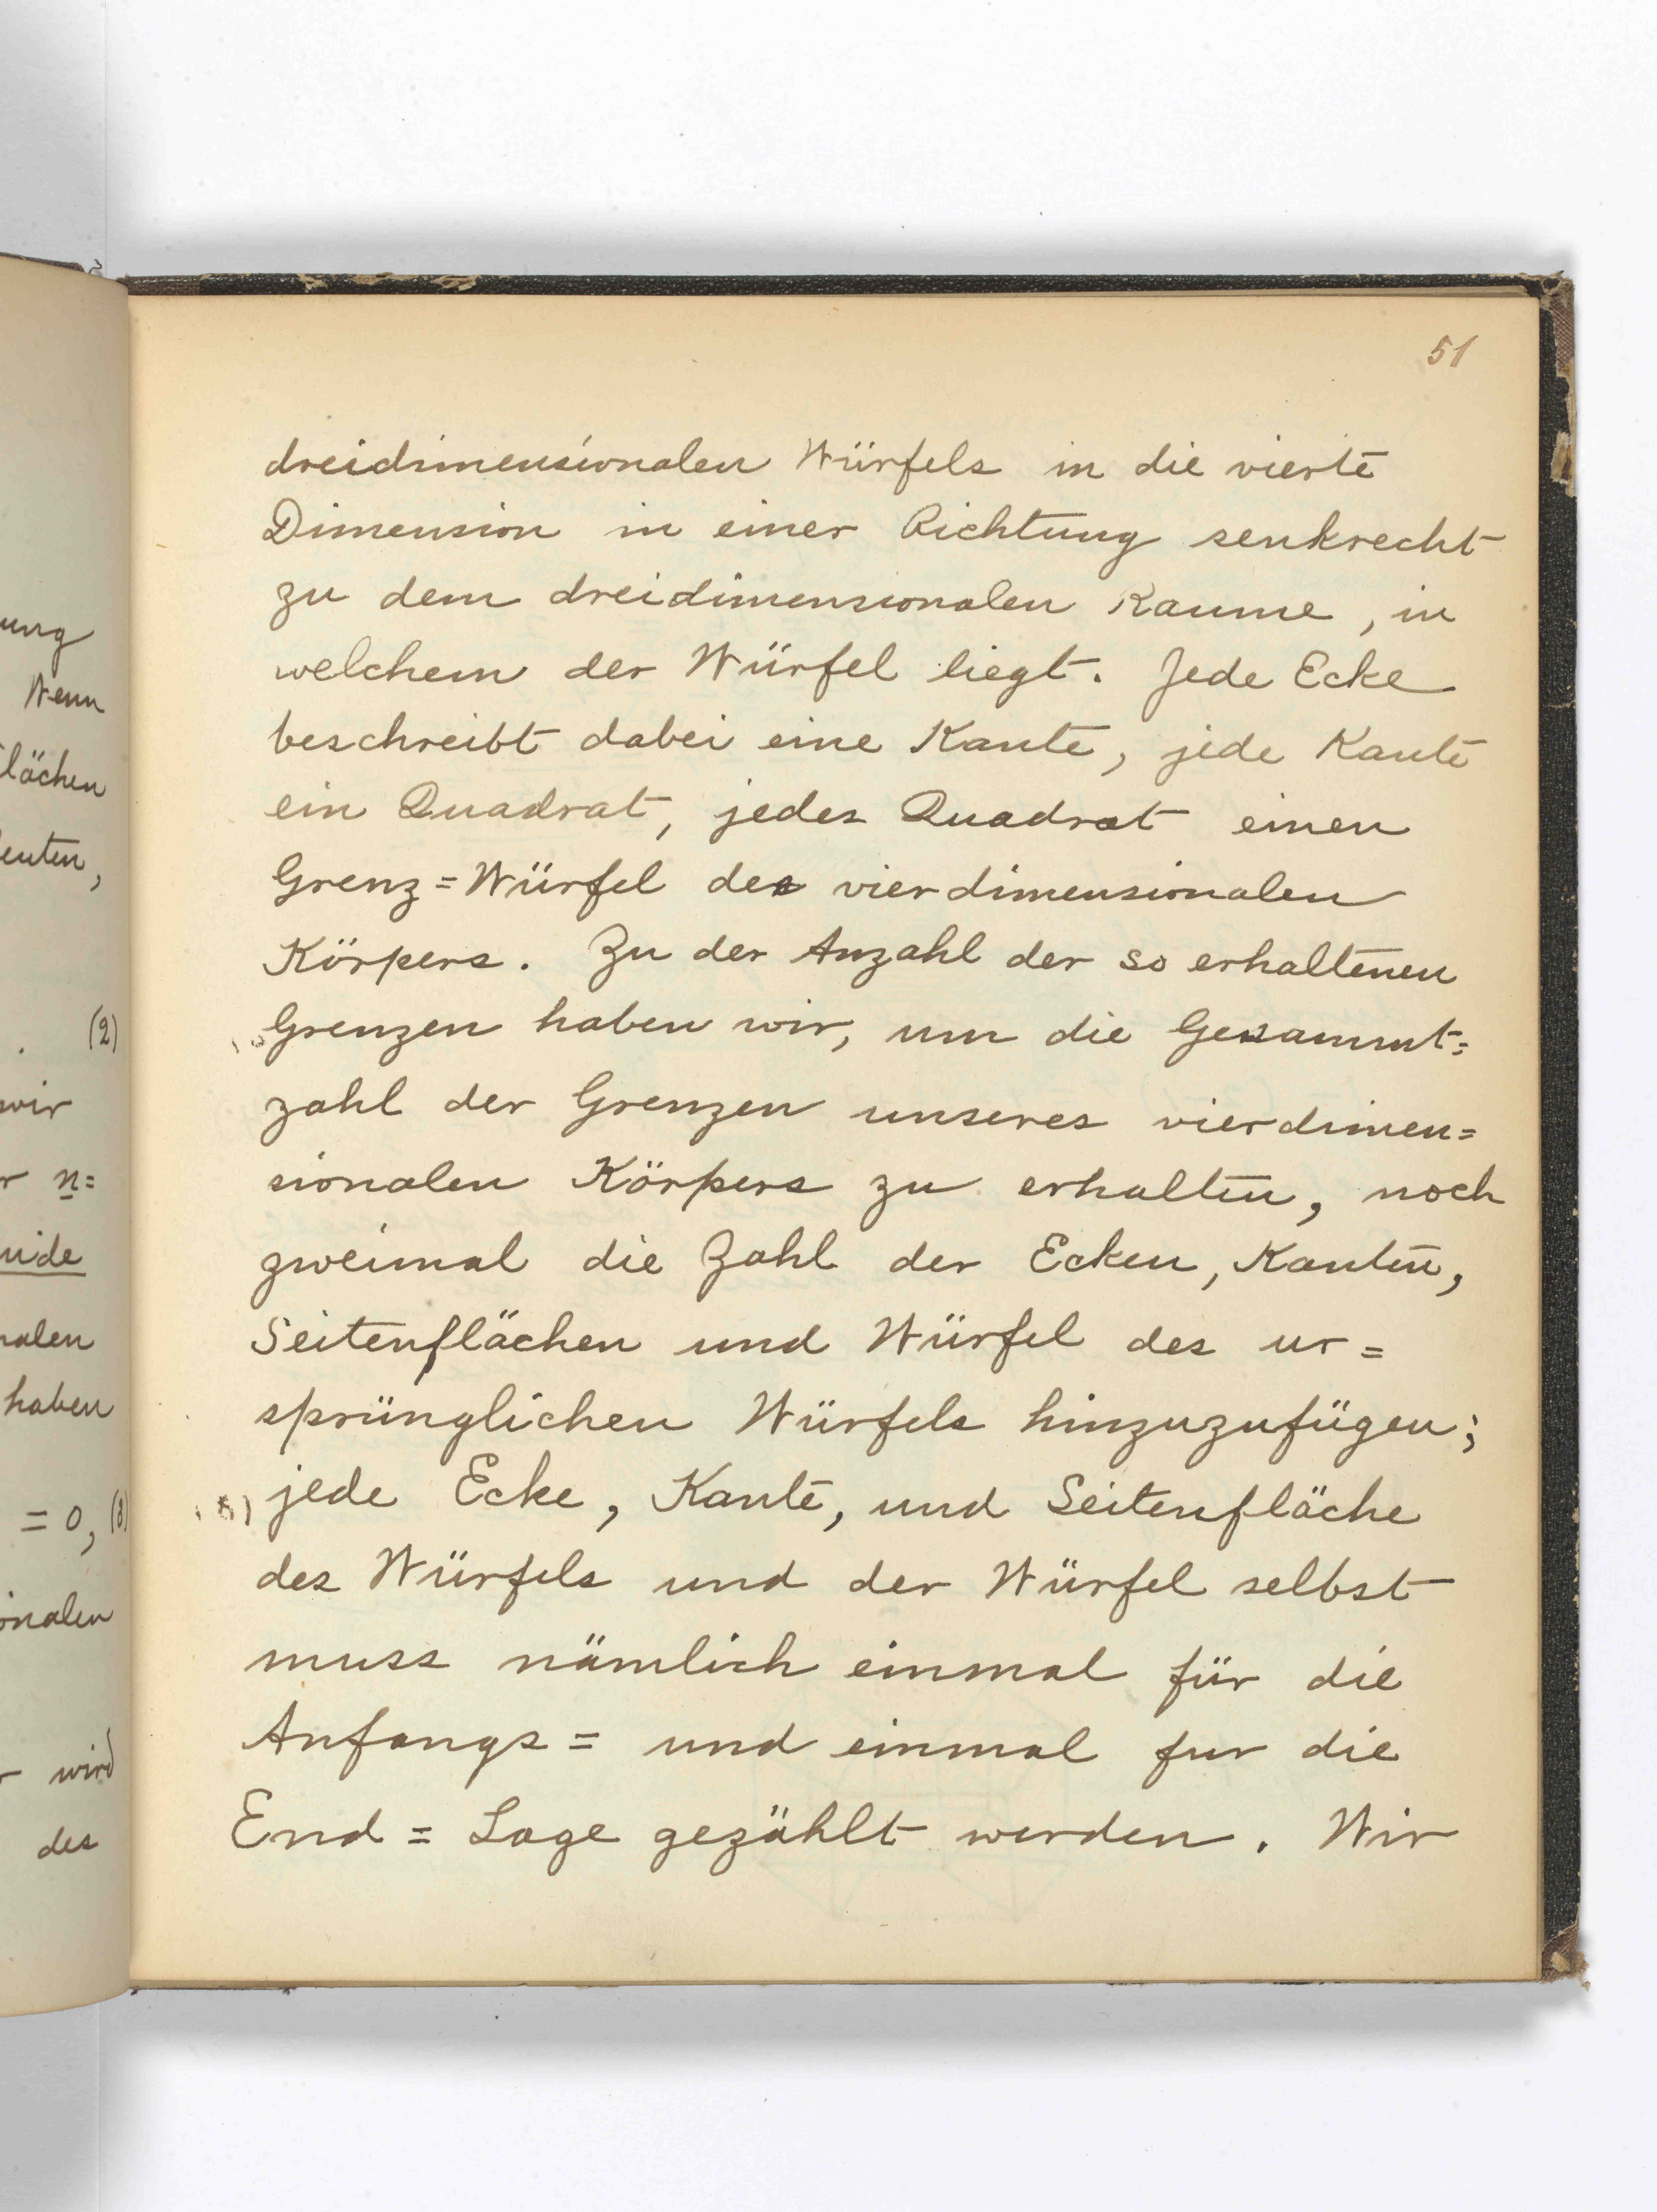 51
dreidimensionalen Würfels in die vierte
Dimension in einer Richtung senkrecht
zu dem dreidimensionalen Raume, in
welchem der Würfel liegt. Jede Ecke
beschreibt dabei eine Kante, jede Kante
ein Quadrat, jedes Quadrat einen
Grenz=Würfel des vierdimensionalen
Körpers. Zu der Anzahl der so erhaltenen
Grenzen haben wir, um die Gesammt=
zahl der Grenzen unseres vierdimen=
sionalen Körpers zu erhalten, noch
zweimal die Zahl der Ecken, Kanten,
Seitenflächen und Würfel des ur=
sprünglichen Würfels hinzuzufügen;
jede Ecke, Kante, und Seitenfläche
des Würfels und der Würfel selbst
muss nämlich einmal für die
Anfangs= und einmal fur die
End=Lage gezählt werden. Wir
ung
Wenn
lächen
enten,
(2)
wir
r n=
nide
nalen
haben
= 0, (3)
onalen
r wird
des